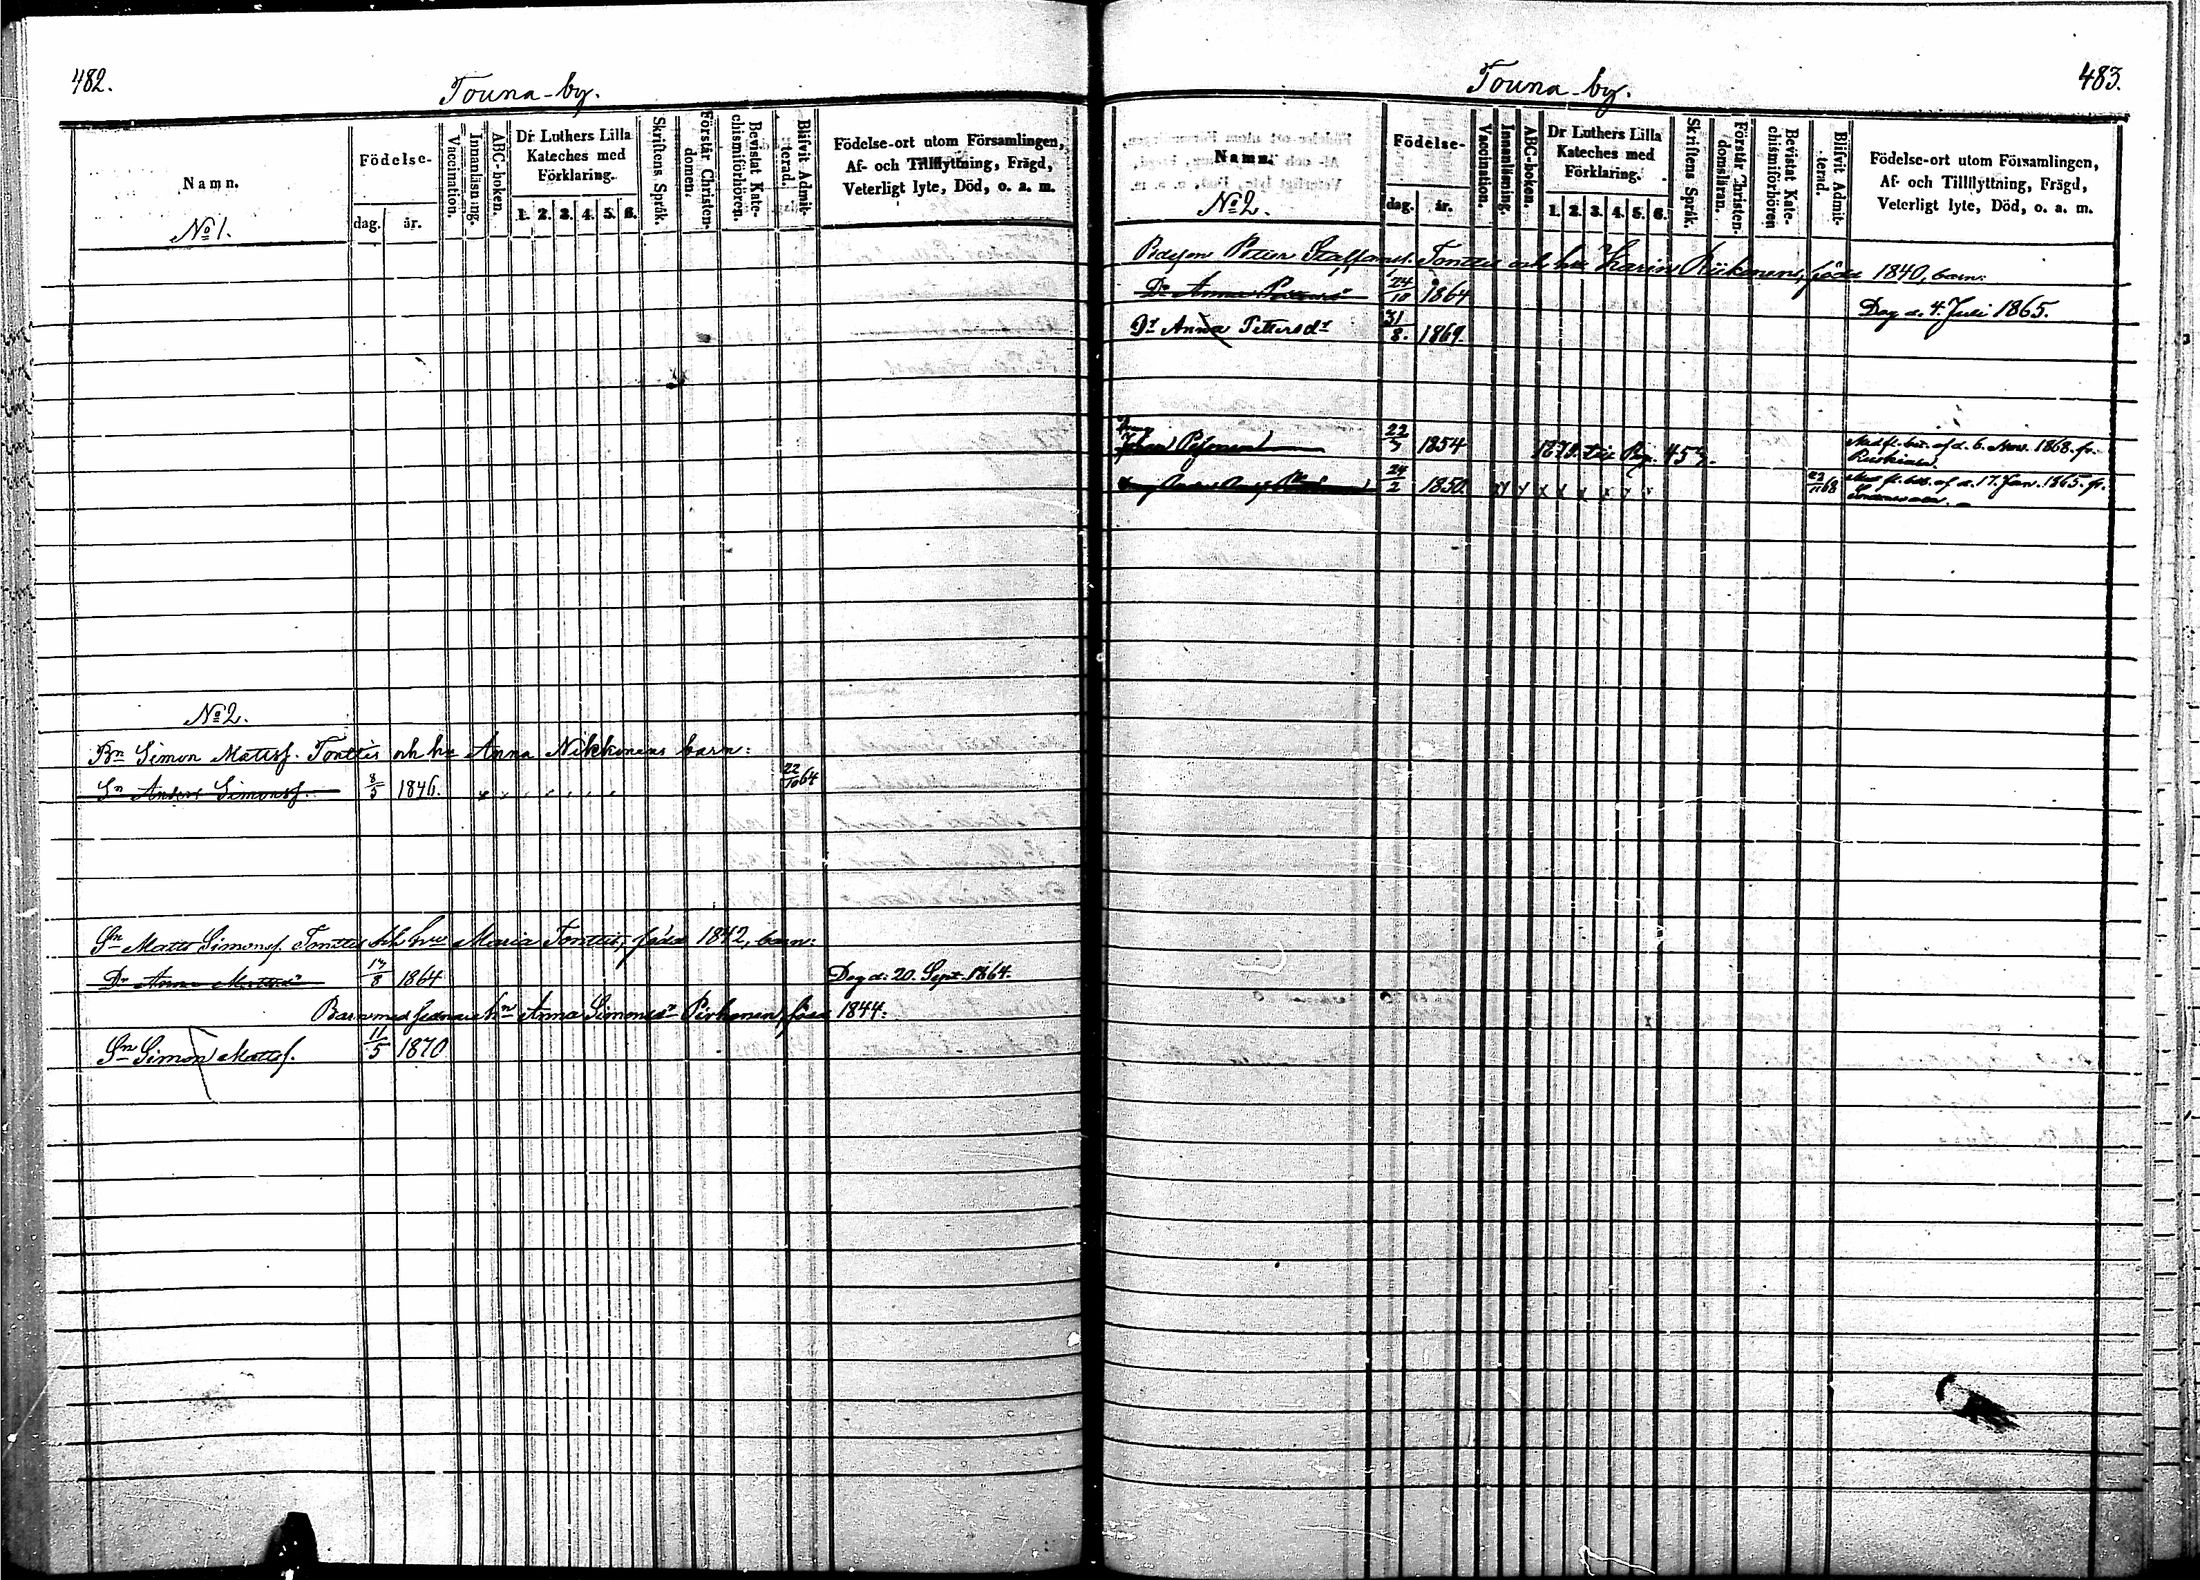 482.
Touna-by.
Namn.
Födelse-
dag.
år.
Vaccination.
Innanläsning.
ABC-boken.
Dr Luthers Lilla
Kateches med
Förklaring.
1. 2. 3. 4. 5. 6.
Skriftens Språk.
Förstår Christen-
domen.
Bevistat Kate-
chismiförhören.
Blifvit Admit-
terad.
Födelse-ort utom Församlingen,
Af- och Tillflyttning, Frägd,
Veterligt lyte, Död, o. a. m.
No 1.
No 2.
Bn Simon Mattsf. Tonttis och hu Anna Nikkonens barn:
Sn Anders Simonsf. 8/5 1846. 22/10 64
Sn Matts Simonsf. Tonttis och hu Maria Tonttis, född 1842, barn:
Dr Anna Mattsdr 17/8 1864 Dog d. 20. Sept. 1864.
Barn med hu Anna Simonsdr född 1844:
Sn Simon Mattsf. 11/5 1870
483.
Touna-by.
Namn.
Födelse-
dag.
år.
Vaccination.
Innanläsning.
ABC-boken.
Dr Luthers Lilla
Kateches med
Förklaring.
1. 2. 3. 4. 5. 6.
Skriftens Språk.
Förstår Christen-
domsläran.
Bevistat Kate-
chismiförhören
Blifvit Admit-
terad.
Födelse-ort utom Församlingen,
Af- och Tillflyttning, Frägd,
Veterligt lyte, Död, o. a. m.
No 2.
Petter Staffansf. Tonttis och hu Karin född 1840, barn:
Dr Anna 24/10 1864 Dog d. 4. Juli 1865.
Dr Anna Pettersdr 31/8. 1869.
Johan 22/7 1854 1870 till Pag. 457. Med fl. bet. af d. 6. Nov. 1868. fr.
Ruskiala.
24/2 1850. 22/11 68 Med fl. bet. af d. 17. Jan. 1865. fr.